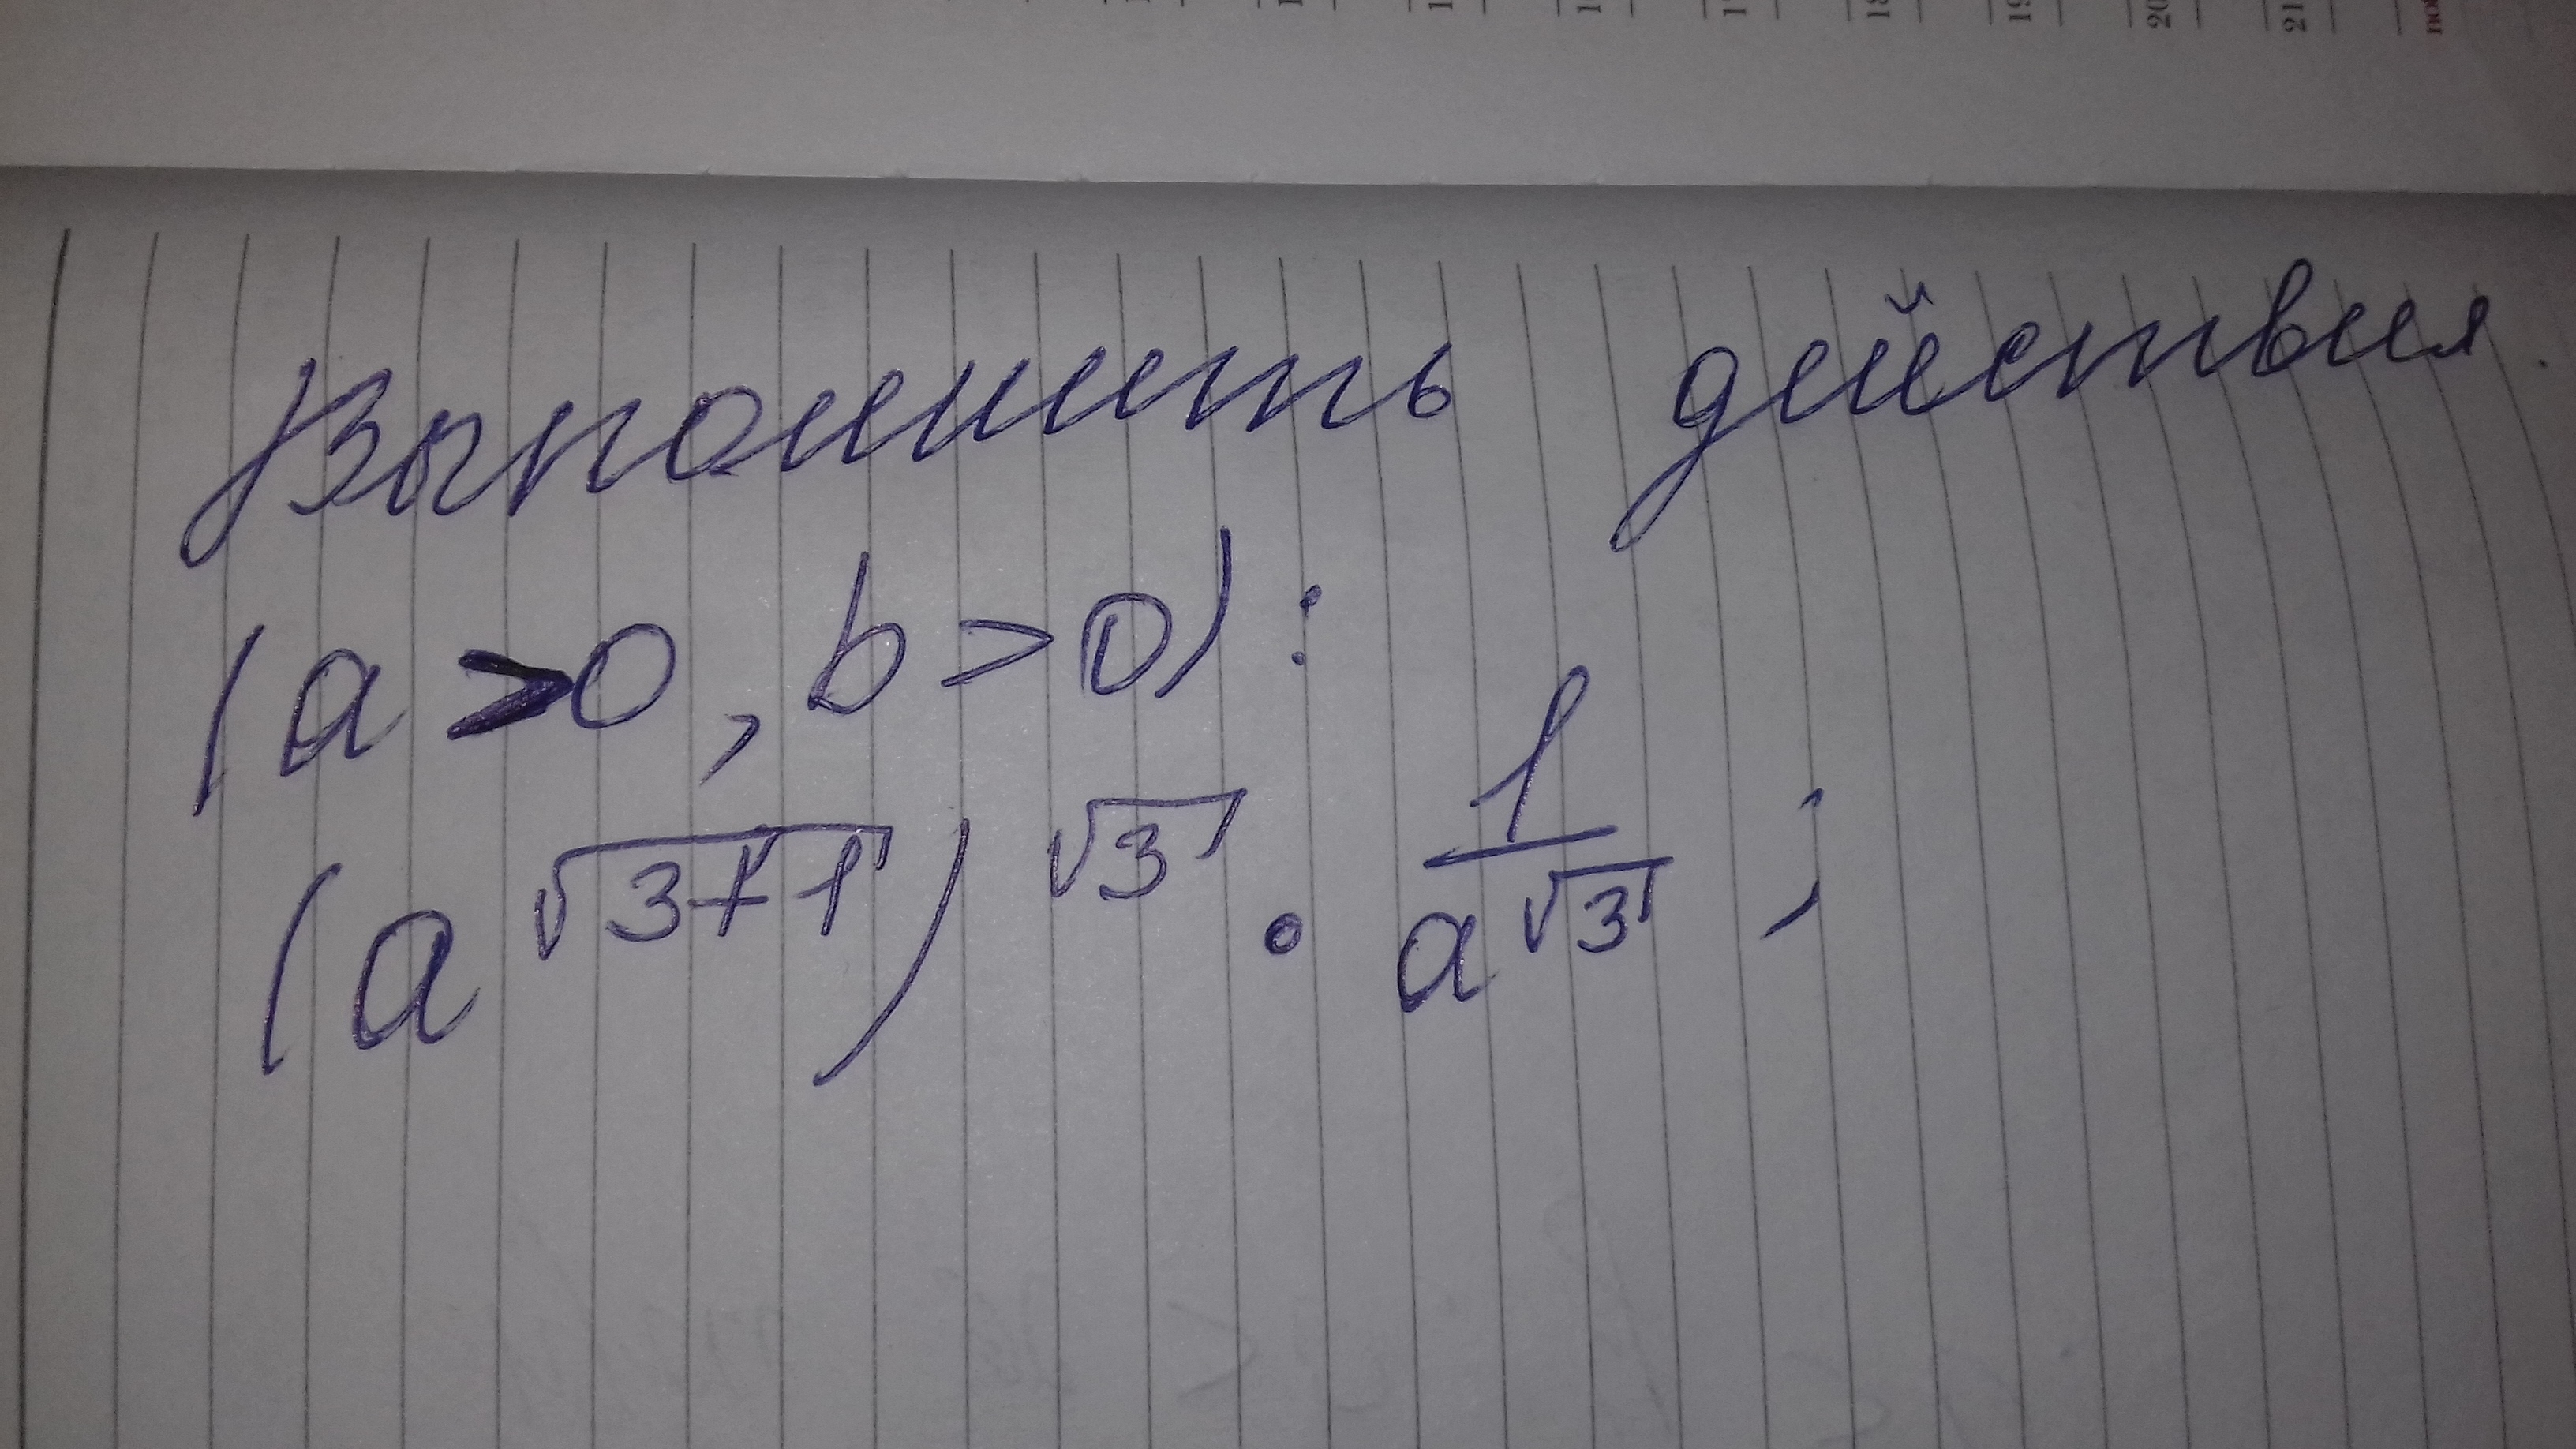 Выполнить действия
(a > 0, b > 0):
(a^√(3+1))^√3 · 1/a^√3 ;